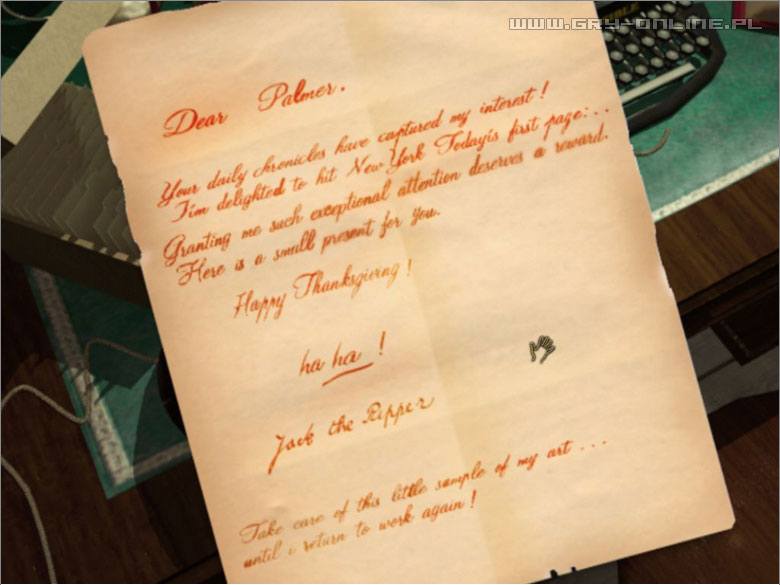 WWW.GRY-ONLINE.PL
Dear Palmer.
Your daily chronicles have captured my interest!
I'm delighted to hit New York Today's first page...
Granting me such exceptional attention deserves a reward.
Here is a small present for you.
Happy Thanksgiving!
ha ha!
Jack the Ripper
Take care of this little sample of my art...
until i return to work again!